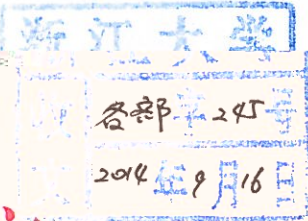 浙江大学
收 各部字245号
文 2014年9月16日